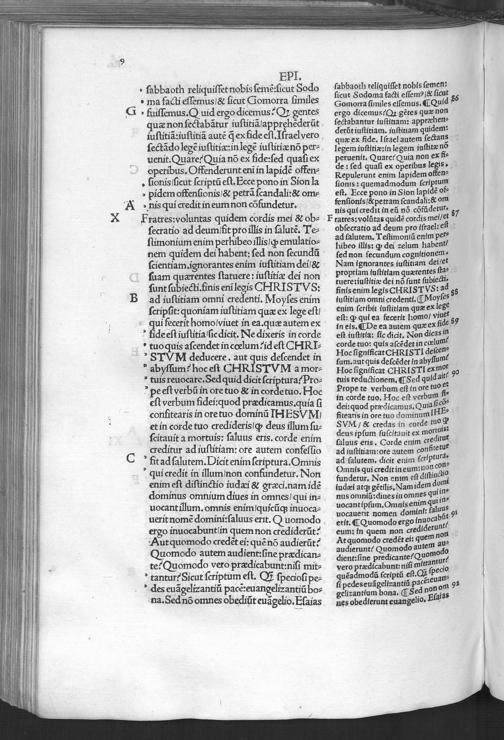 9
EPI.
sabbaoth reliquisset nobis semē: sicut Sodo
ma facti essemus/ & sicut Gomorra similes
G fuissemus. Quid ergo dicemus? Qꝫ gentes
quæ non sectabātur iustitiā: apprehēderūt
iustitiā: iustitiā autē q̄ ex fide est. Israel vero
sectādo legē iustitiæ: in legē iustitiæ nō per-
uenit. Quare? Quia nō ex fide: sed quasi ex
operibus. Offenderunt eni in lapidē offen-
sionis/ sicut scriptū est. Ecce pono in Sion la
pidem offensionis/ & petrā scandali: & om-
A nis qui credit in eum non cōfundetur.
X Fratres: voluntas quidem cordis mei & ob-
secratio ad deum/ fit pro illis in salutē. Te-
stimonium enim perhibeo illis/ ꝙ emulatio-
nem quidem dei habent: sed non secundū
scientiam. ignorantes enim iustitiam dei/ &
suam quærentes statuere: iustitiæ dei non
sunt subiecti. finis eni legis CHRISTVS:
B ad iustitiam omni credenti. Moyses enim
scripsit: quoniam iustitiam quæ ex lege est/
qui fecerit homo/ viuet in ea. quæ autem ex
fide est iustitia/ sic dicit. Ne dixeris in corde
tuo quis ascendet in cœlum? id est CHRI-
STVM deducere. aut quis descendet in
abyssum? hoc est CHRISTVM a mor-
tuis reuocare. Sed quid dicit scriptura? Pro
pe est verbū in ore tuo & in corde tuo. Hoc
est verbum fidei: quod prædicamus. quia si
confitearis in ore tuo dominū IHESVM/
et in corde tuo credideris/ ꝙ deus illum su-
scitauit a mortuis: saluus eris. corde enim
creditur ad iustitiam: ore autem confessio
C fit ad salutem. Dicit enim scriptura. Omnis
qui credit in illum/ non confundetur. Non
enim est distinctio iudæi & græci. nam idē
dominus omnium diues in omnes/ qui in-
uocant illum. omnis enim/ quicūqꝫ inuoca-
uerit nomē domini: saluus erit. Quomodo
ergo inuocabunt/ in quem non crediderūt?
Aut quomodo credēt ei: quem nō audierūt?
Quomodo autem audient: sine prædican-
te? Quomodo vero prædicabunt: nisi mit-
tantur? Sicut scriptum est. Qꝫ speciosi pe-
des euāgelizantiū pacē: euangelizantiū bo
na. Sed nō omnes obediūt euāgelio. Esaias
sabbaoth reliquisset nobis semen:
sicut Sodoma facti essem⁹/ & sicut
Gomorra similes essemus. ¶ Quid 86
ergo dicemus? Qꝫ gētes quæ non
sectabantur iustitiam: apprehen-
derūt iustitiam. iustitiam quidem:
quæ ex fide. Israel autem sectans
legem iustitiæ: in legem iustitiæ nō
peruenit. Quare? Quia non ex fi-
de: sed quasi ex operibus legis.
Repulerunt enim lapidem offen-
sionis: quemadmodum scriptum
est. Ecce pono in Sion lapidē of-
fensionis/ & petram scandali: & om-
nis qui credit in eū nō cōfūdetur.
Fratres: volūtas quidē cordis mei/ et 87
obsecratio ad deum pro israel: est
ad salutem. Testimoniū enim per-
hibeo illis: ꝙ dei zelum habent/
sed non secundum cognitionem.
Nam ignorantes iustitiam dei/ et
propriam iustitiam quærentes sta-
tuere: iustitiæ dei nō sunt subiecti.
finis enim legis CHRISTVS: ad
iustitiam omni credenti. ¶ Moyses 88
enim scribit iustitiam quæ ex lege
est: ꝙ qui ea fecerit homo/ viuet
in eis. ¶ De ea autem quæ ex fide 89
est iustitia: sic dicit. Non dices in
corde tuo: quis ascēdet in cœlum?
Hoc significat CHRISTI deductio-
nem. aut quis descēdet in abyssum?
Hoc significat CHRISTI ex mor
tuis reductionem. ¶ Sed quid ait? 90
Prope te verbum est in ore tuo et
in corde tuo. Hoc est verbum fi-
dei: quod prædicamus. Quia si cō-
fitearis in ore tuo dominum IHE-
SVM/ & credas in corde tuo ꝙ
deus ipsum suscitauit ex mortuis:
saluus eris. Corde enim creditur
ad iustitiam: ore autem confitetur
ad salutem. dicit enim scriptura.
Omnis qui credit in eum: non con-
fundetur. Non enim est distinctio
iudæi atqꝫ gētilis. Nam idem domi
nus omniū: diues in omnes qui in-
uocant ipsum. Omnis enim qui in-
uocauerit nomen domini: saluus
erit. ¶ Quomodo ergo inuocabūt 91
eum: in quem non crediderunt?
At quomodo credēt ei: quem non
audierunt? Quomodo autem au-
dient: sine predicante? Quomodo
vero prædicabunt: nisi mittantur?
quēadmodū scriptū est. Qꝫ specio
si pedes euāgelizantiū pacē: euan-
gelizantium bona. ¶ Sed non om 92
nes obedierunt euangelio. Esaias